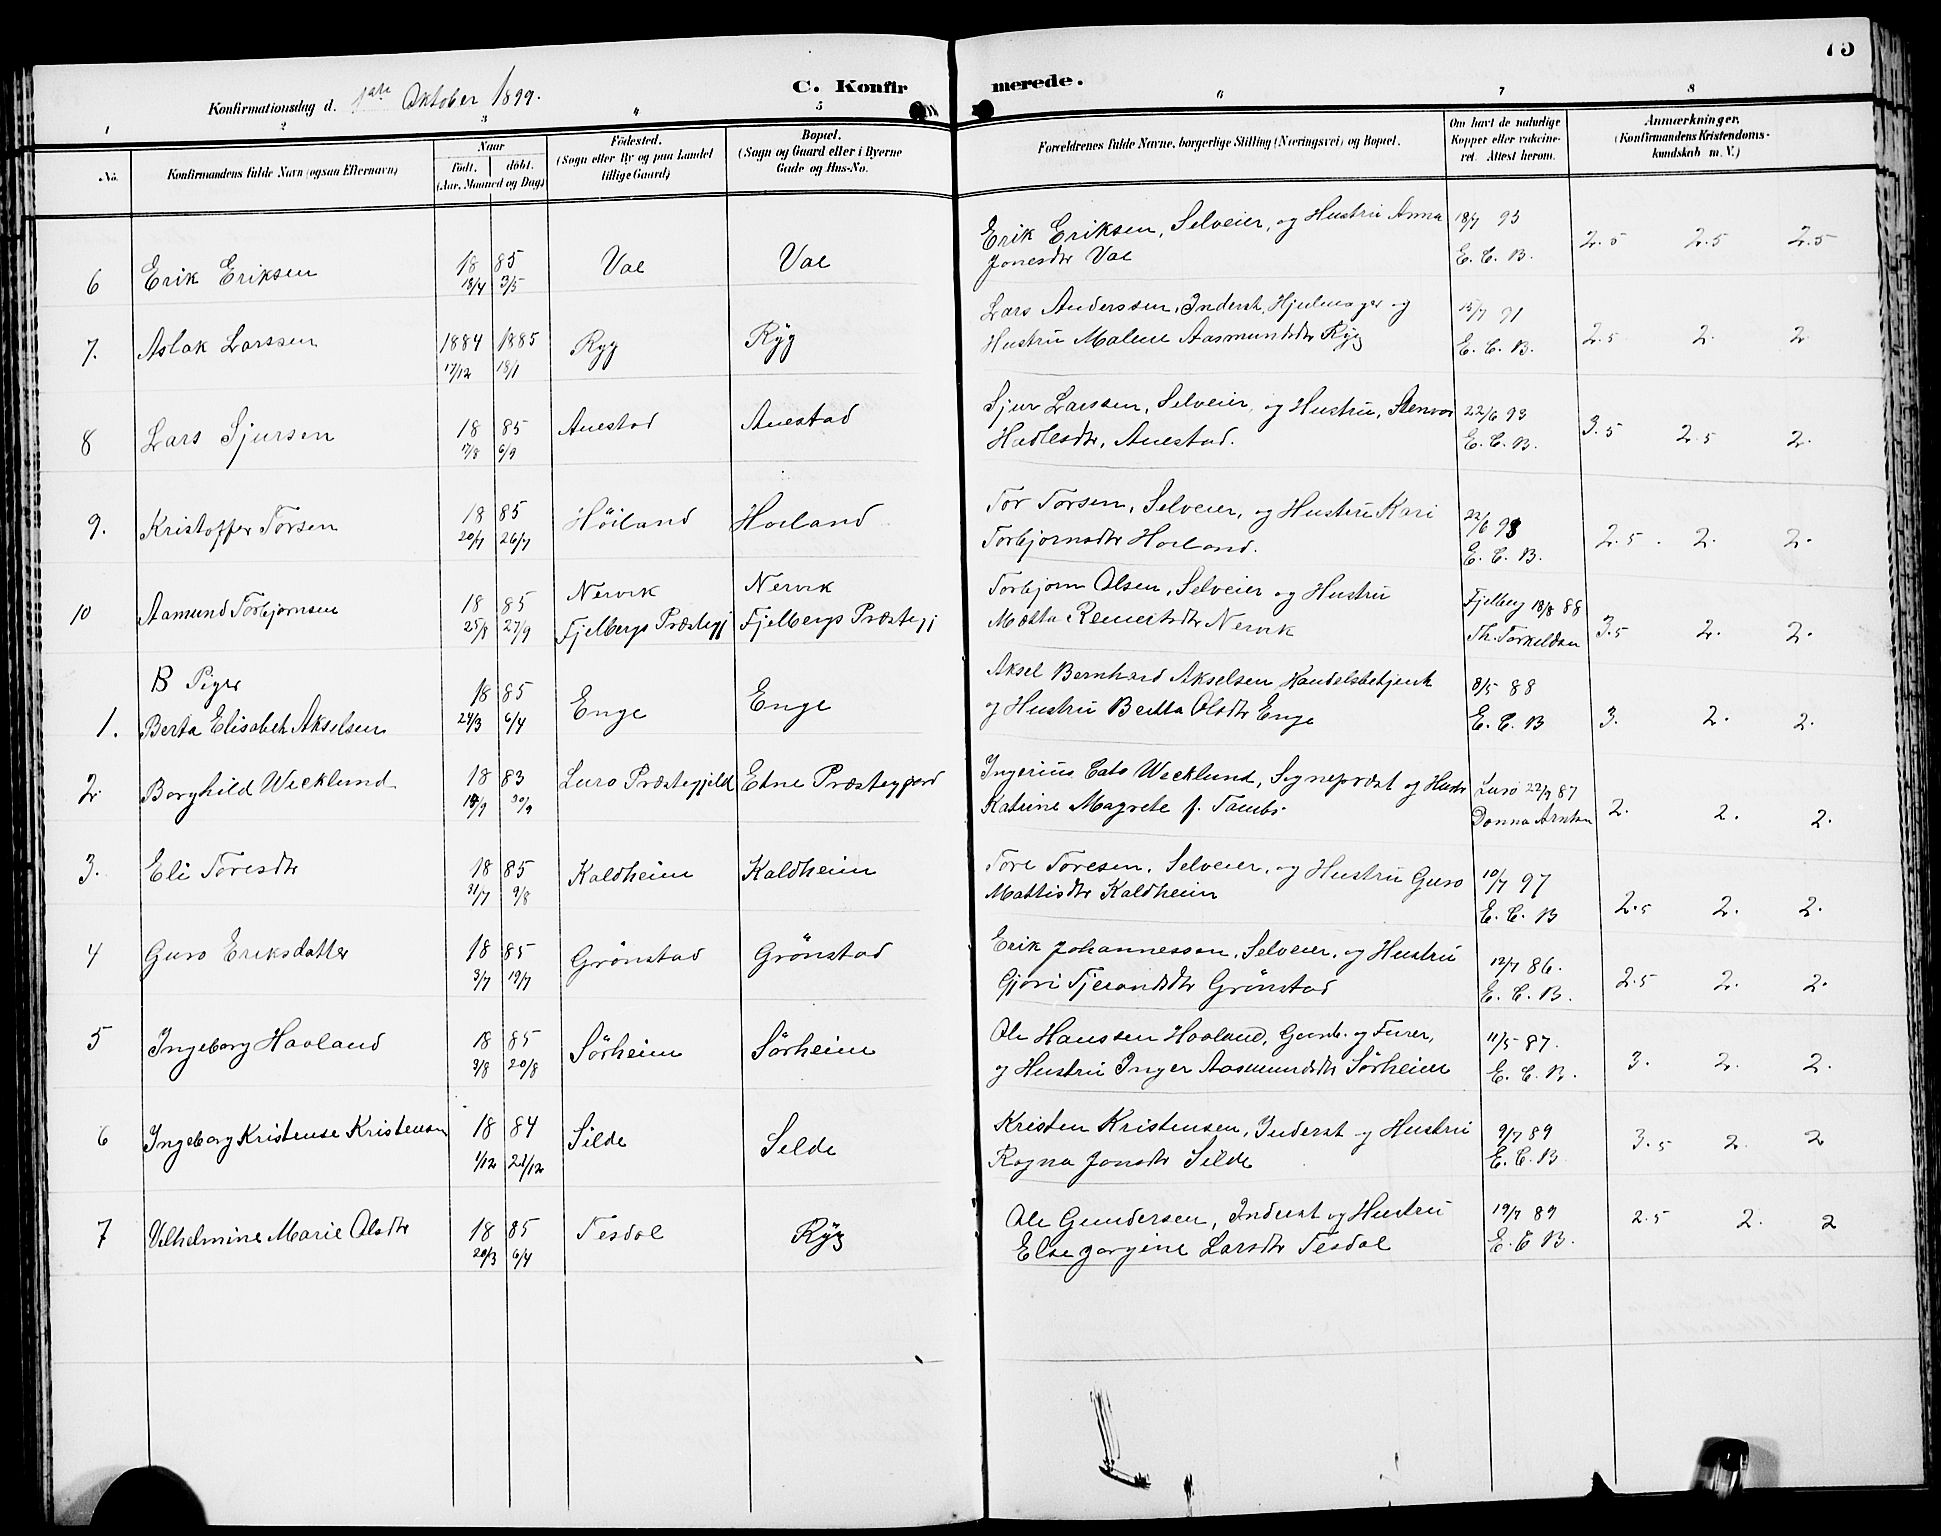 75
Konfirmationsdag d. 1ste Oktober 1899.
C. Konfirmerede.
1 2 3 4 5 6 7 8
No. Konfirmandens fulde Navn (ogsaa Efternavn) Naar født. døbt. (Aar, Maaned og Dag) Fødested. (Sogn eller By og paa Landet tillige Gaard) Bopæl. (Sogn og Gaard eller i Byerne Gade og Hus-No. Forældrenes fulde Navne, borgerlige Stilling (Næringsvei) og Bopæl. Om havt de naturlige Kopper eller vakcineret. Attest herom. Anmærkninger. (Konfirmandens Kristendomskundskab m. V.)
6 Erik Eriksen 18 85 Vae Vae Erik Eriksen, Selveier, og Hustru Anna 18/7 93 2.5 2.5 2.5
18/4 3/5 Jonesdtr Vae E. C. B.
7. Aslak Larssen 1884 1885 Ryg Ryg Lars Anderssen, Inderst, Hjulmager og 15/7 91 2.5 2. 2
17/12 18/1 Hustru Malene Aasmundsdtr Ryg E. C. B.
8 Lars Sjursen 18 85 Auestad Auestad Sjur Larssen, Selveier, og Hustru, Stenvor 22/6 93 3.5 2.5 2.
17/8 6/9 Hadlesdtr, Auestad. E. C. B.
9. Kristoffer Torsen 18 85 Höiland Hoiland Tor Torsen, Selveier, og Hustru Kari 22/6 93 2.5 2. 2.
20/7 26/7 Torbjornsdtr Hoiland. E. C. B.
10 Aamund Torbjornsen 18 85 Nervik Nervik Torbjorn Olsen, Selveier og Hustru Fjelberg 18/8 88 3.5 2. 2.
25/8 27/9 Fjelbergs Præstegj Fjelbergs Præstegj Mætta Remeitsdtr Nervik Th. Torkeldsen
B Piger
1. Berta Elisabeh Akselsen 18 85 Enge Enge Aksel Bernhard Akselsen Handelsbetjent 8/5 88 3. 2. 2.
24/3 6/4 og Hustru Britta Olsdtr Enge E. C. B
2. Borghild Wecklund 18 83 Luro Præstegjeld Etne Præstegjeld Ingerius Cato Wecklund, Sognepræst og Hustr Luro 22/7 87 2. 2. 2.
30/9 Katrine Magrete f. Tambs. Donna Arntsen
3. Eli Toresdtr 18 85 Kaldheim Kaldheim Tore Toresen, Selveier, og Hustru Guro 10/7 97 2.5 2. 2.
31/7 9/8 Mattisdtr Kaldheim E. C. B
4 Guro Eriksdatter 18 85 Grönstad Grönstad Erik Johannessen, Selveier, og Hustru 12/7 86. 2.5 2. 2.
3/7 19/7 Gjöri Tjerandsdtr Grönstad E. C. B.
5 Ingeborg Haaland 18 85 Sörheim Sörheim Ole Hanssen Haaland, Gaarb. og Furer, 11/5 87. 3. 2. 2.
3/8 20/8 og Hustru Inger Aasmundsdtr Sörheim E. C. B.
6 Ingeborg Kristense Kristensen 18 84 Silde Selde Kristen Kristensen, Inderst og Hustru 9/7 89 3.5 2. 2
1/12 21/12 Ragna Jonsdtr Silde E. C. B.
7 Vilhelmine Marie Olsdtr 18 85 Tesdal Ryg Ole Gundersen, Inderst og Hustru 19/7 89 2.5 2. 2
20/3 6/4 Else Jorgine Larsdtr Tesdal E. C B.